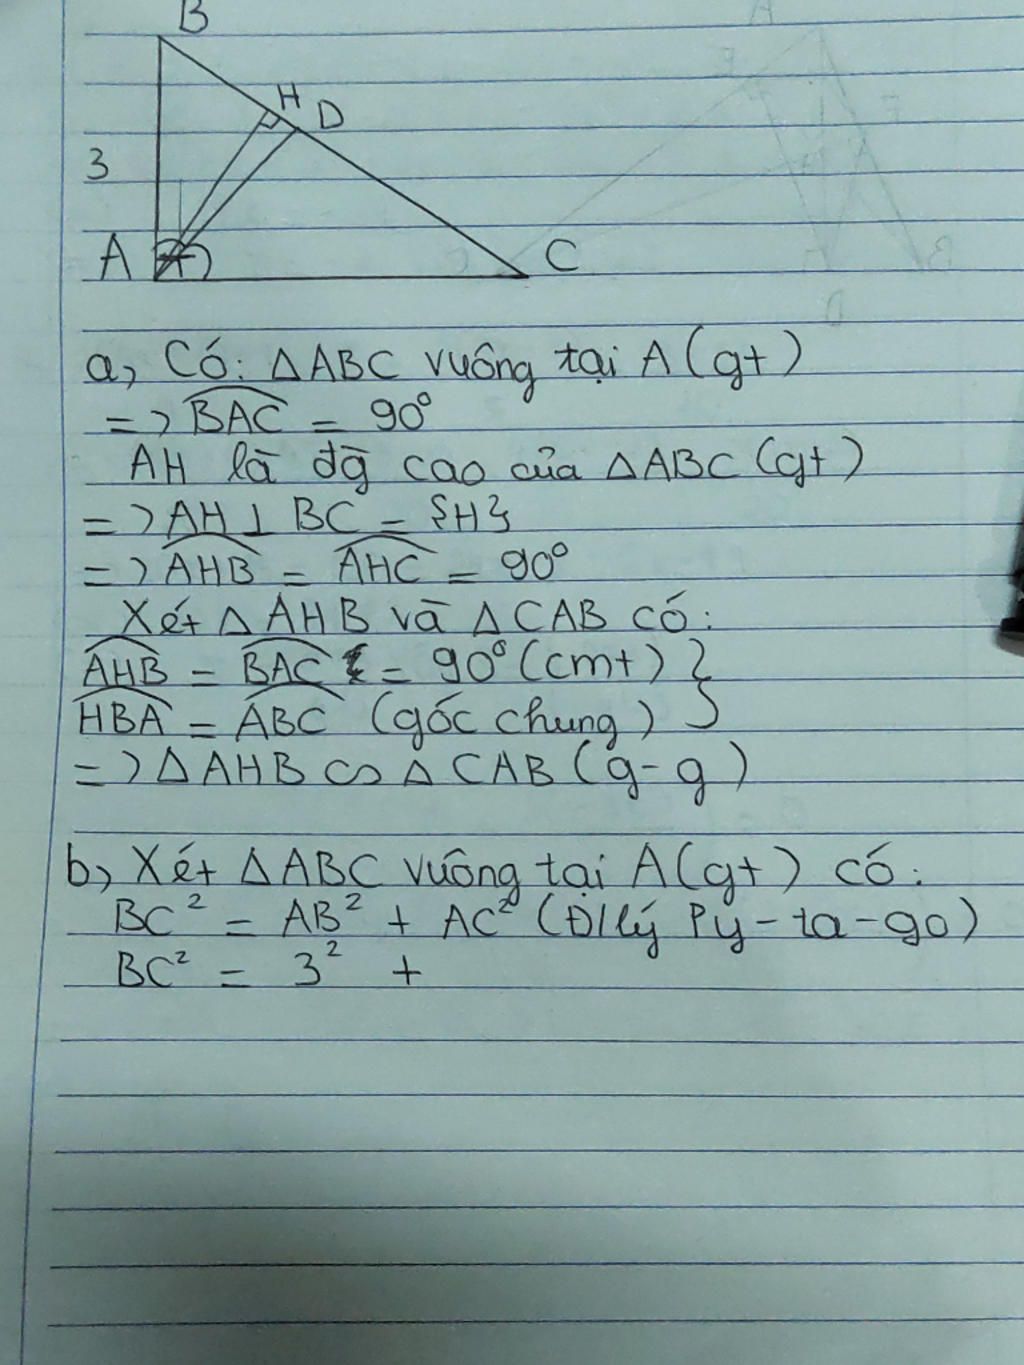 B
H D
3
A
C
a, Có: △ABC vuông tại A (gt)
=> BAC = 90°
AH là đg cao của △ABC (gt)
=> AH ⊥ BC = {H}
=> AHB = AHC = 90°
Xét △AHB và △CAB có:
AHB = BAC = 90° (cmt) }
HBA = ABC (góc chung) }
=> △AHB ∽ △CAB (g-g)
b, Xét △ABC vuông tại A (gt) có:
BC² = AB² + AC² (Đ/lý Py-ta-go)
BC² = 3² +